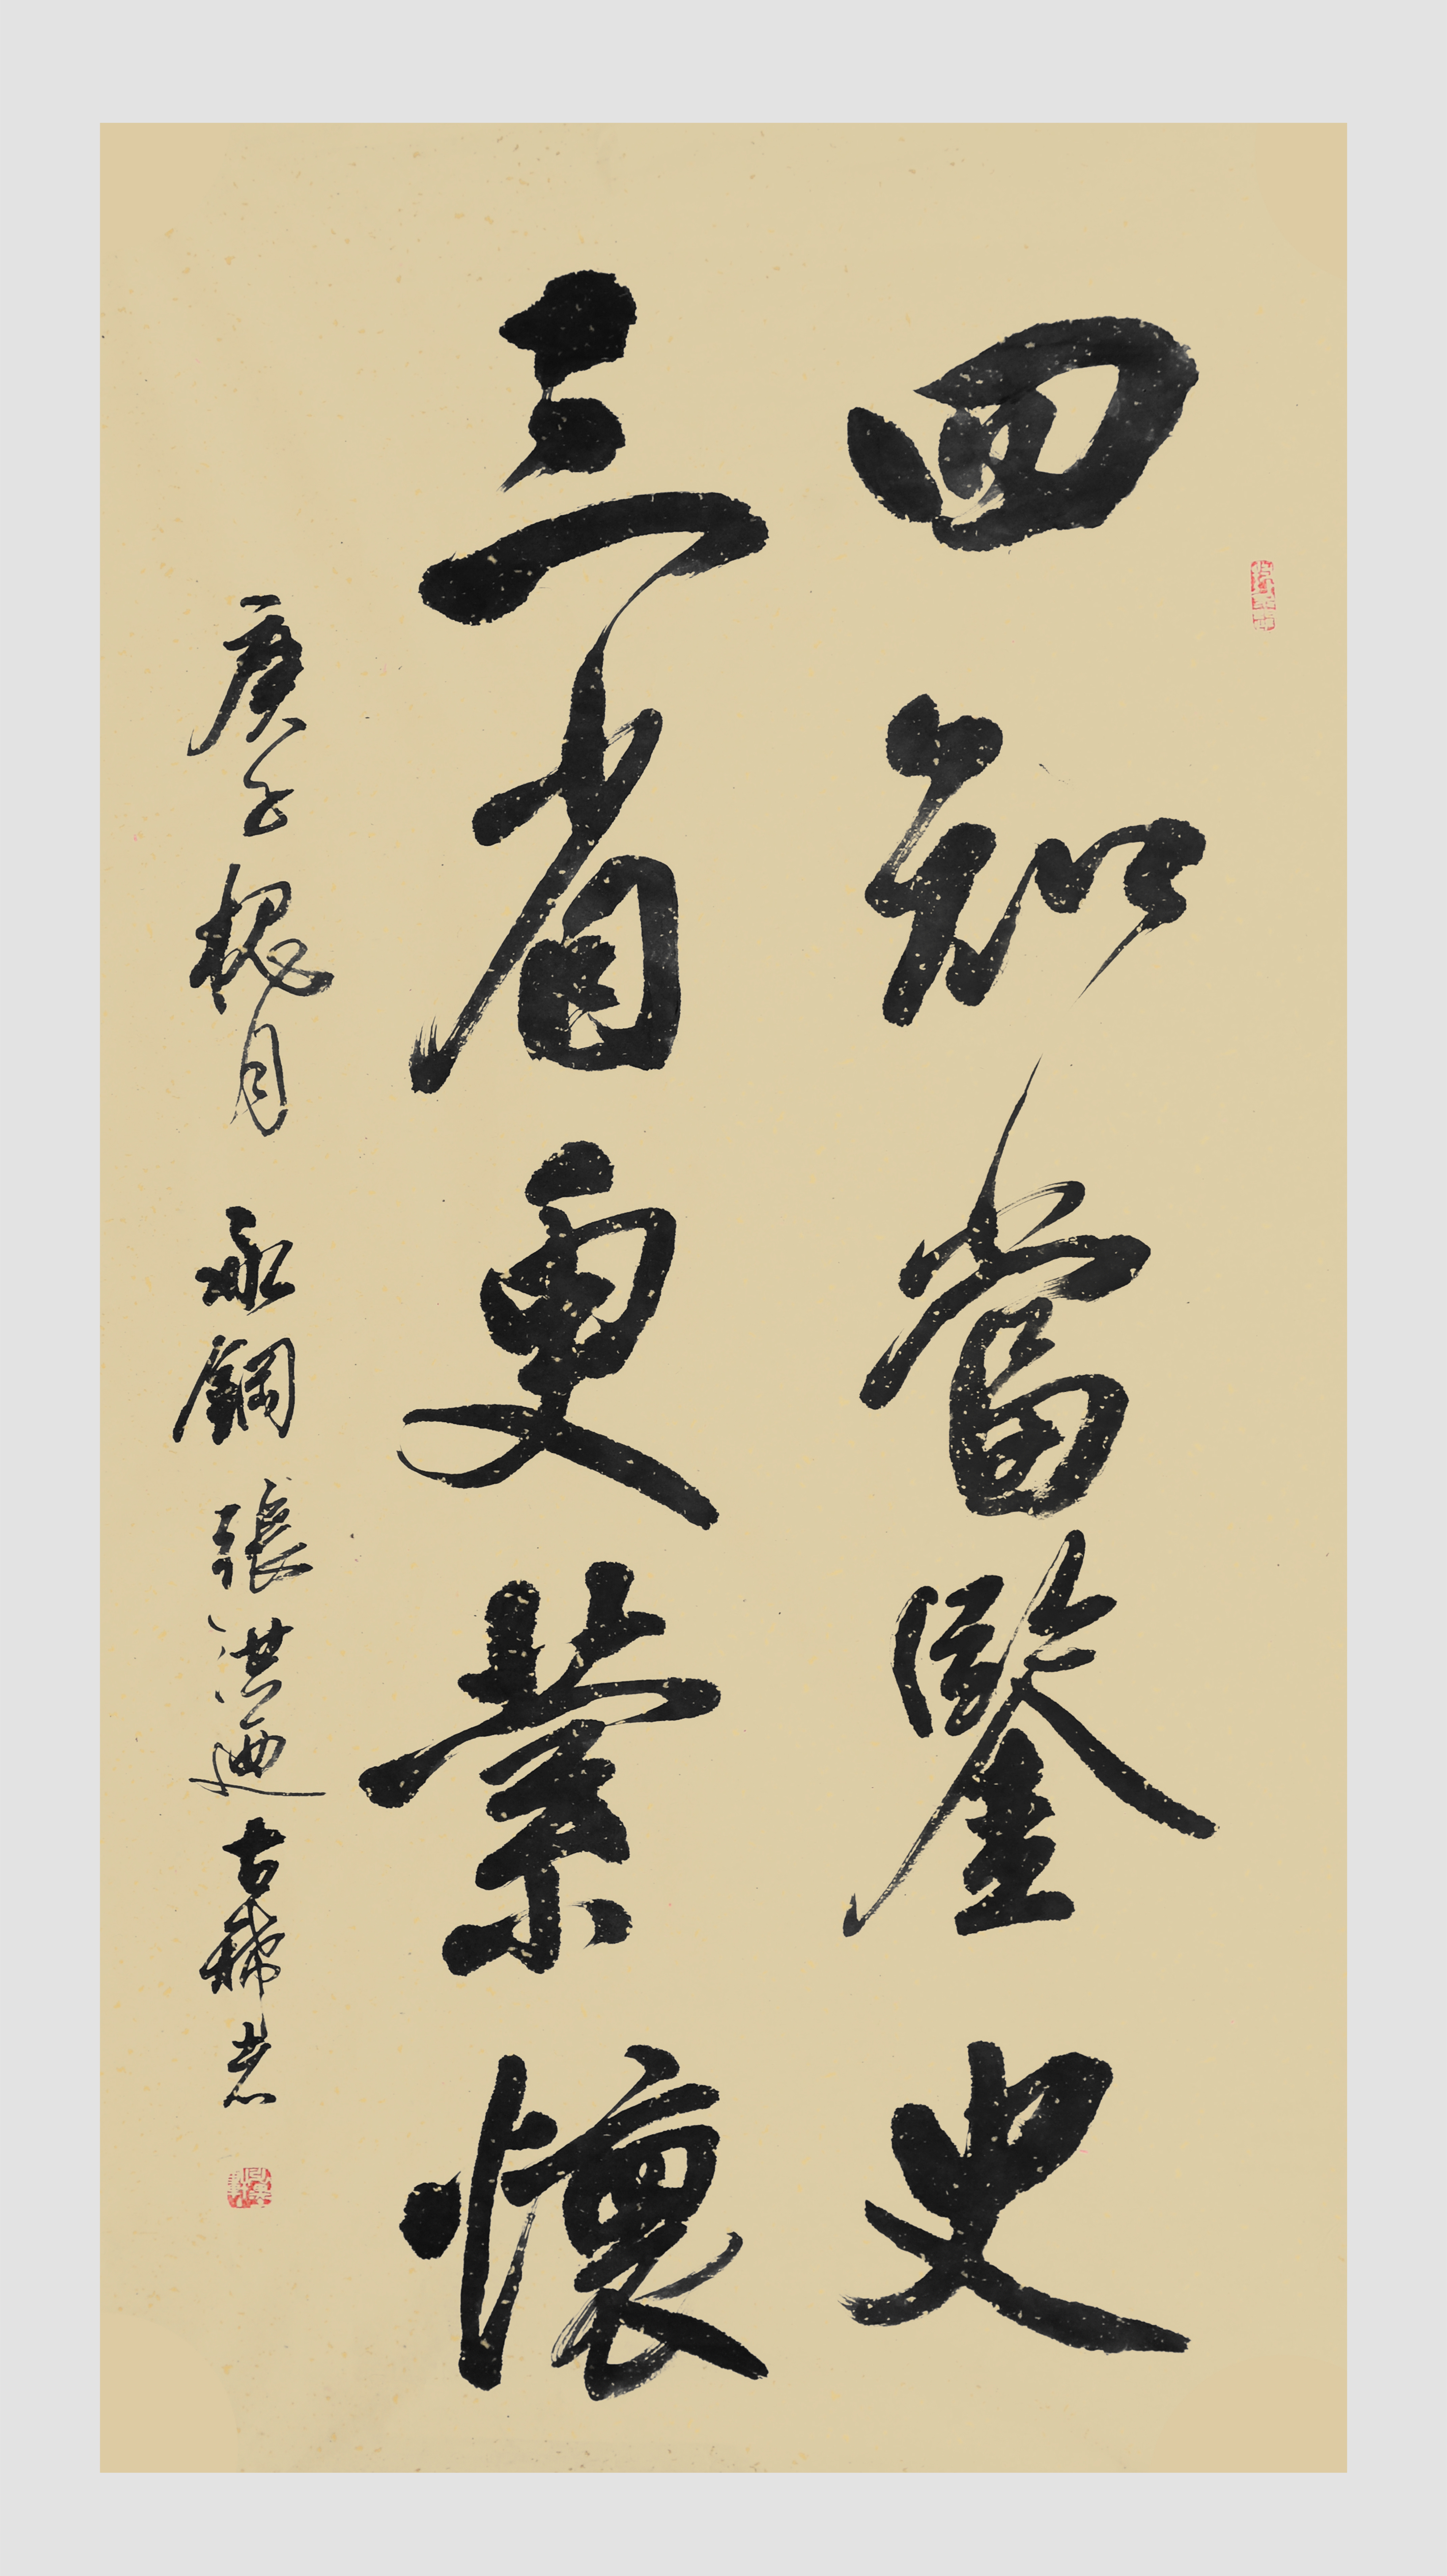 四知當鑒史
三省更縈懷
庚子槐月 永鋼 張洪迺 古稀書